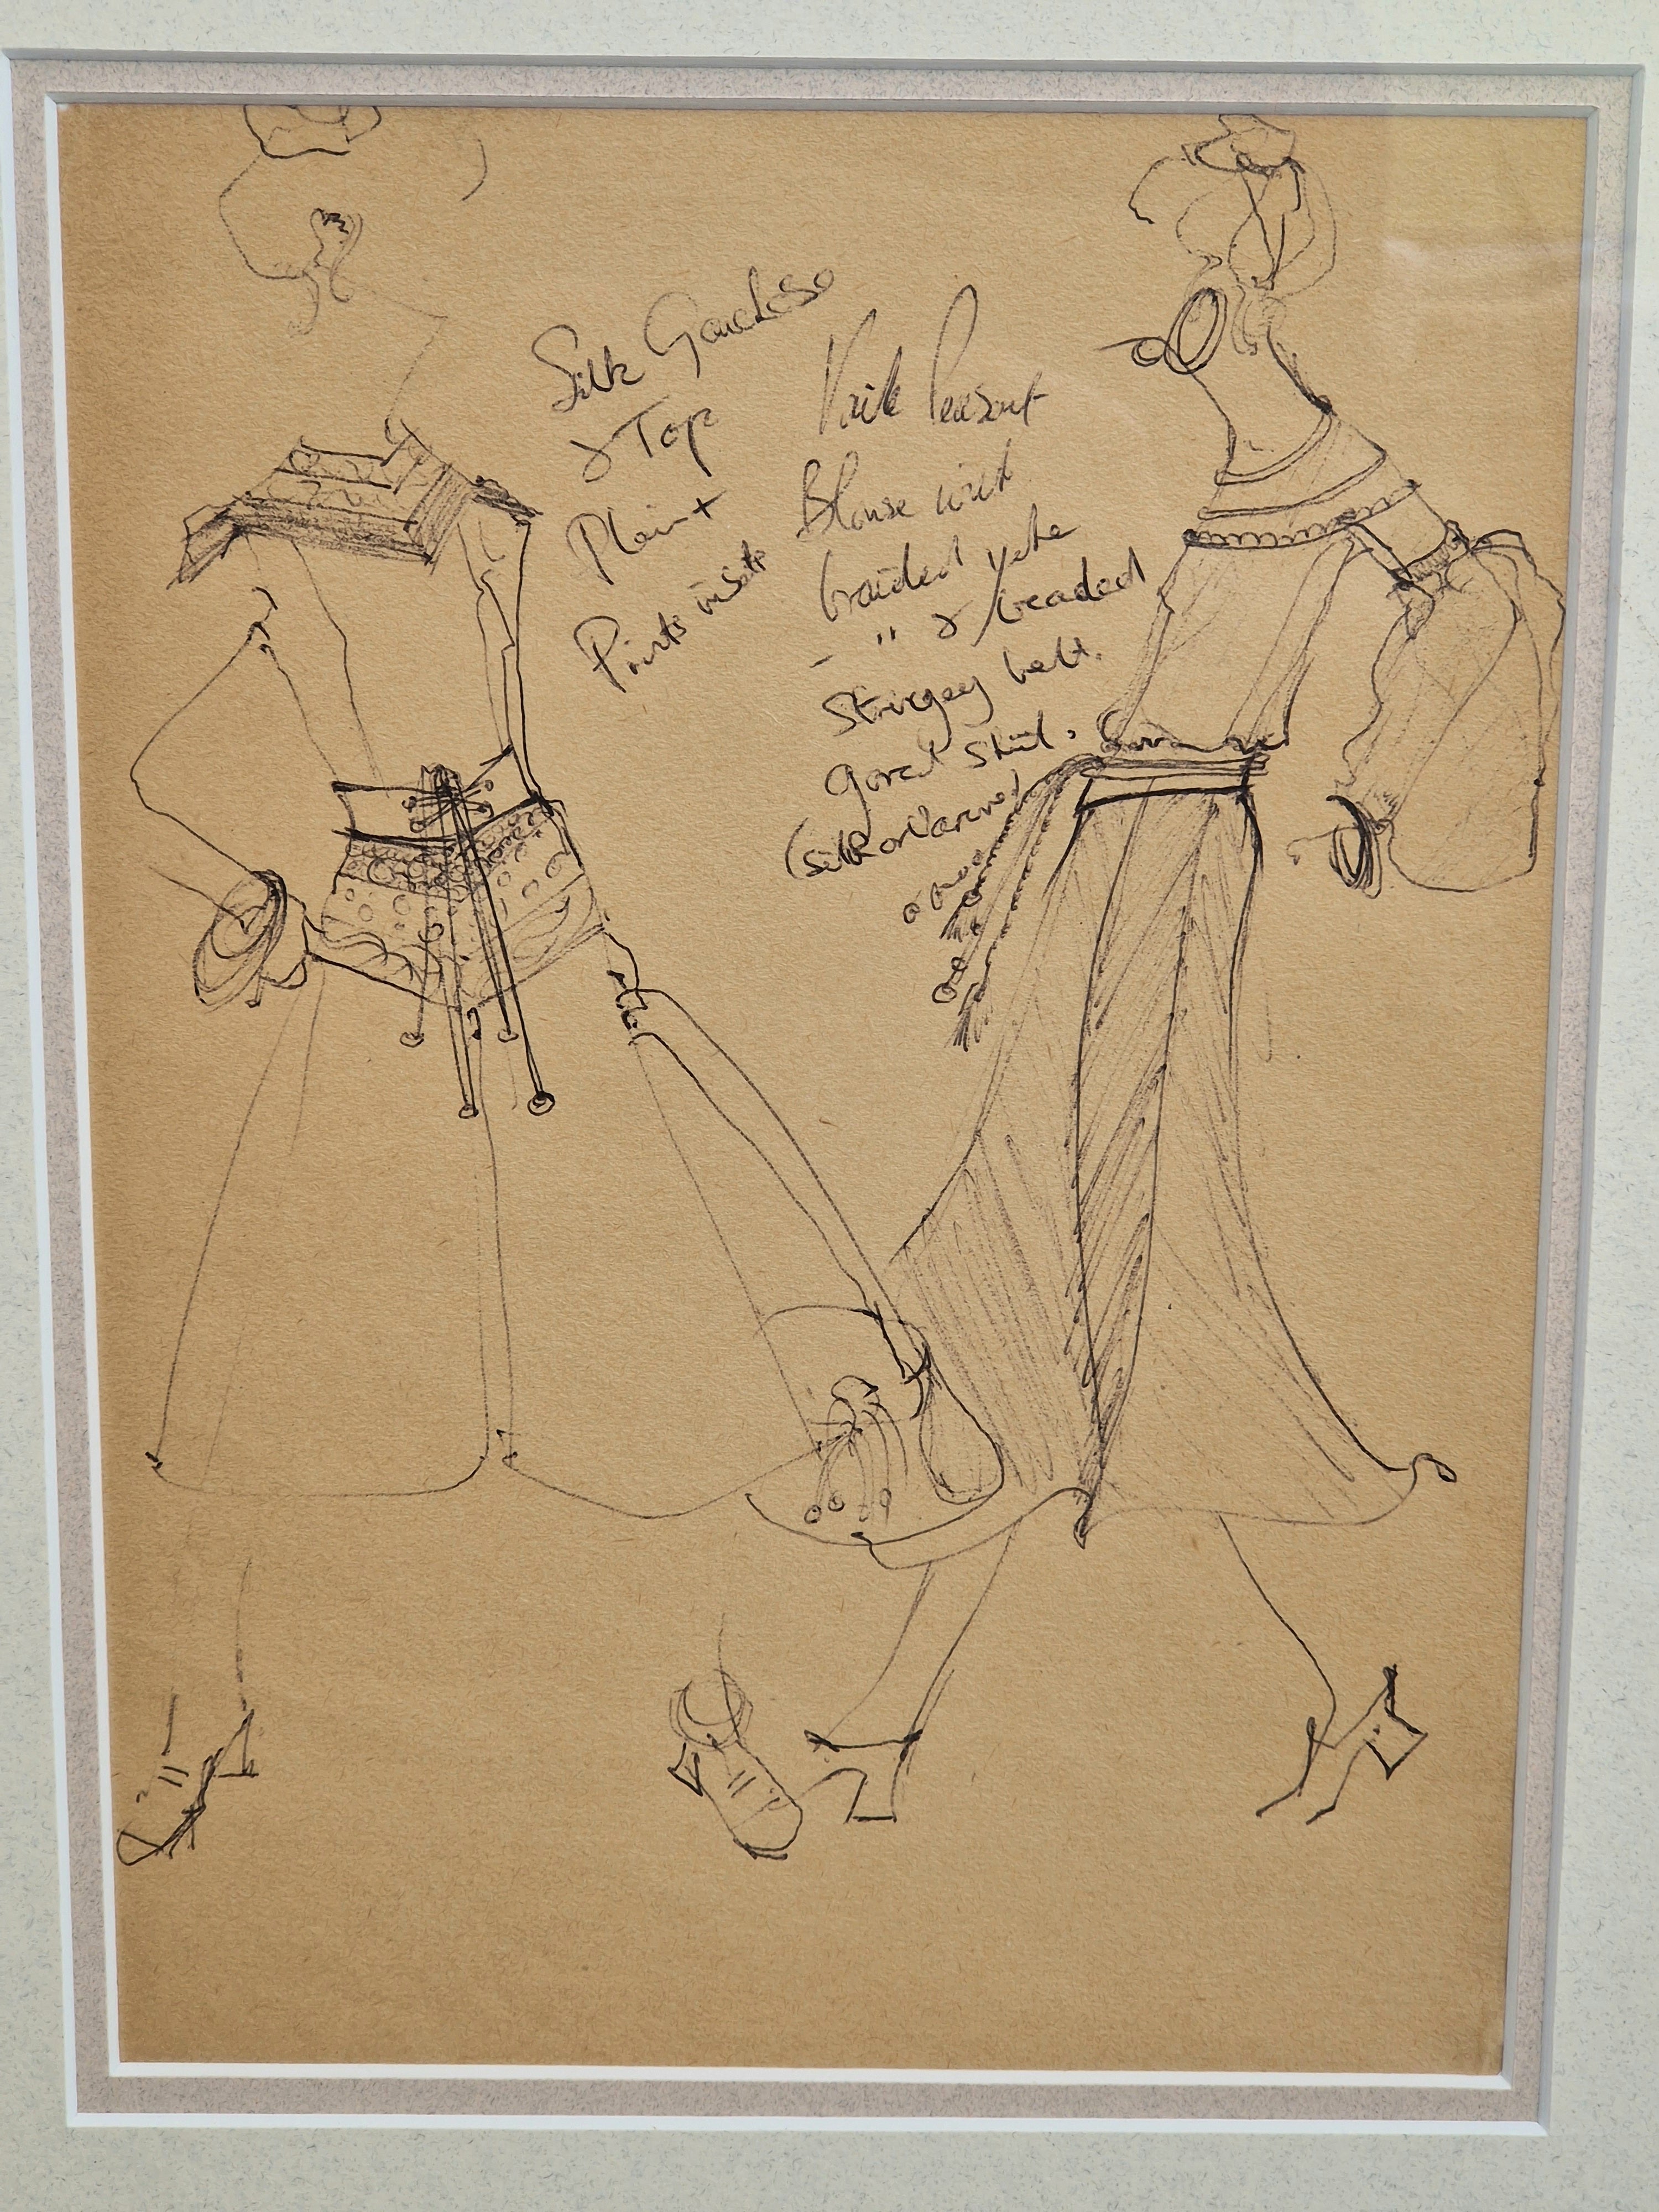 Silk Gauchoso
& Top
Plain +
Prints inside
Voile Peasant
Blouse with
braided yoke
- " & beaded
Stringey belt.
gored skirt.
(silk or